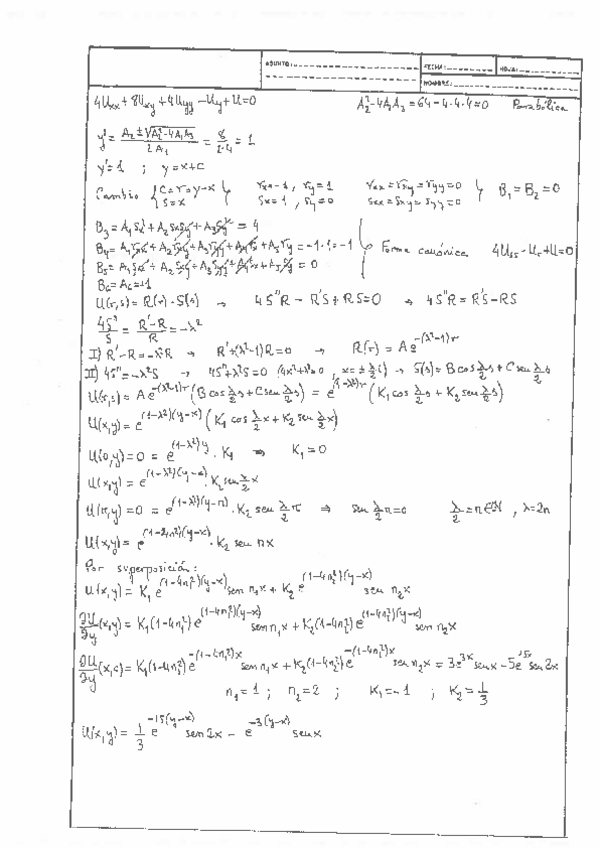 ASUNTO: FECHA: HOJA:
NOMBRE:
4Uxx + 8Uxy + 4Uyy - Uy + U = 0 A₂² - 4A₁A₃ = 64 - 4·4·4 = 0 Parabólica
y' = (A₂ ± √(A₂² - 4A₁A₃)) / 2A₁ = 8/2·4 = 1
y' = 1 ; y = x + C
Cambio { C = r = y - x ; s = x } { rx = -1, ry = 1 ; sx = 1, sy = 0 rxx = rxy = ryy = 0 ; sxx = sxy = syy = 0 } B₁ = B₂ = 0
B₃ = A₁sx² + A₂sxsy + A₃sy² = 4
B₄ = A₁rxx + A₂rxy + A₃ryy + A₄rx + A₅ry = -1·1 = -1 Forma canónica 4Uss - Ur + U = 0
B₅ = A₁sxx + A₂sxy + A₃syy + A₄sx + A₅sy = 0
B₆ = A₆ = +1
U(r,s) = R(r)·S(s) → 4S''R - R'S + RS = 0 → 4S''R = R'S - RS
4S''/S = (R' - R)/R = -λ²
I) R' - R = -λ²R → R' + (λ² - 1)R = 0 → R(r) = A e^(-(λ²-1)r)
II) 4S'' = -λ²S → 4S'' + λ²S = 0 (4x² + λ² = 0, x = ± λ/2 i) → S(s) = B cos λ/2 s + C sen λ/2 s
U(r,s) = A e^(-(λ²-1)r) (B cos λ/2 s + C sen λ/2 s) = e^((1-λ²)r) (K₁ cos λ/2 s + K₂ sen λ/2 s)
U(x,y) = e^((1-λ²)(y-x)) (K₁ cos λ/2 x + K₂ sen λ/2 x)
U(0,y) = 0 = e^((1-λ²)y) · K₁ ⇒ K₁ = 0
U(x,y) = e^((1-λ²)(y-x)) · K₂ sen λ/2 x
U(π,y) = 0 = e^((1-λ²)(y-π)) · K₂ sen λ/2 π ⇒ sen λ/2 π = 0 λ/2 = n ∈ N, λ = 2n
U(x,y) = e^((1-4n²)(y-x)) · K₂ sen nx
Por superposición:
U(x,y) = K₁ e^((1-4n₁²)(y-x)) sen n₁x + K₂ e^((1-4n₂²)(y-x)) sen n₂x
∂U/∂y (x,y) = K₁(1-4n₁²) e^((1-4n₁²)(y-x)) sen n₁x + K₂(1-4n₂²) e^((1-4n₂²)(y-x)) sen n₂x
∂U/∂y (x,0) = K₁(1-4n₁²) e^(-(1-4n₁²)x) sen n₁x + K₂(1-4n₂²) e^(-(1-4n₂²)x) sen n₂x = 3e^(3x) sen x - 5e^(15x) sen 2x
n₁ = 1 ; n₂ = 2 ; K₁ = -1 ; K₂ = 1/3
U(x,y) = 1/3 e^(-15(y-x)) sen 2x - e^(-3(y-x)) sen x